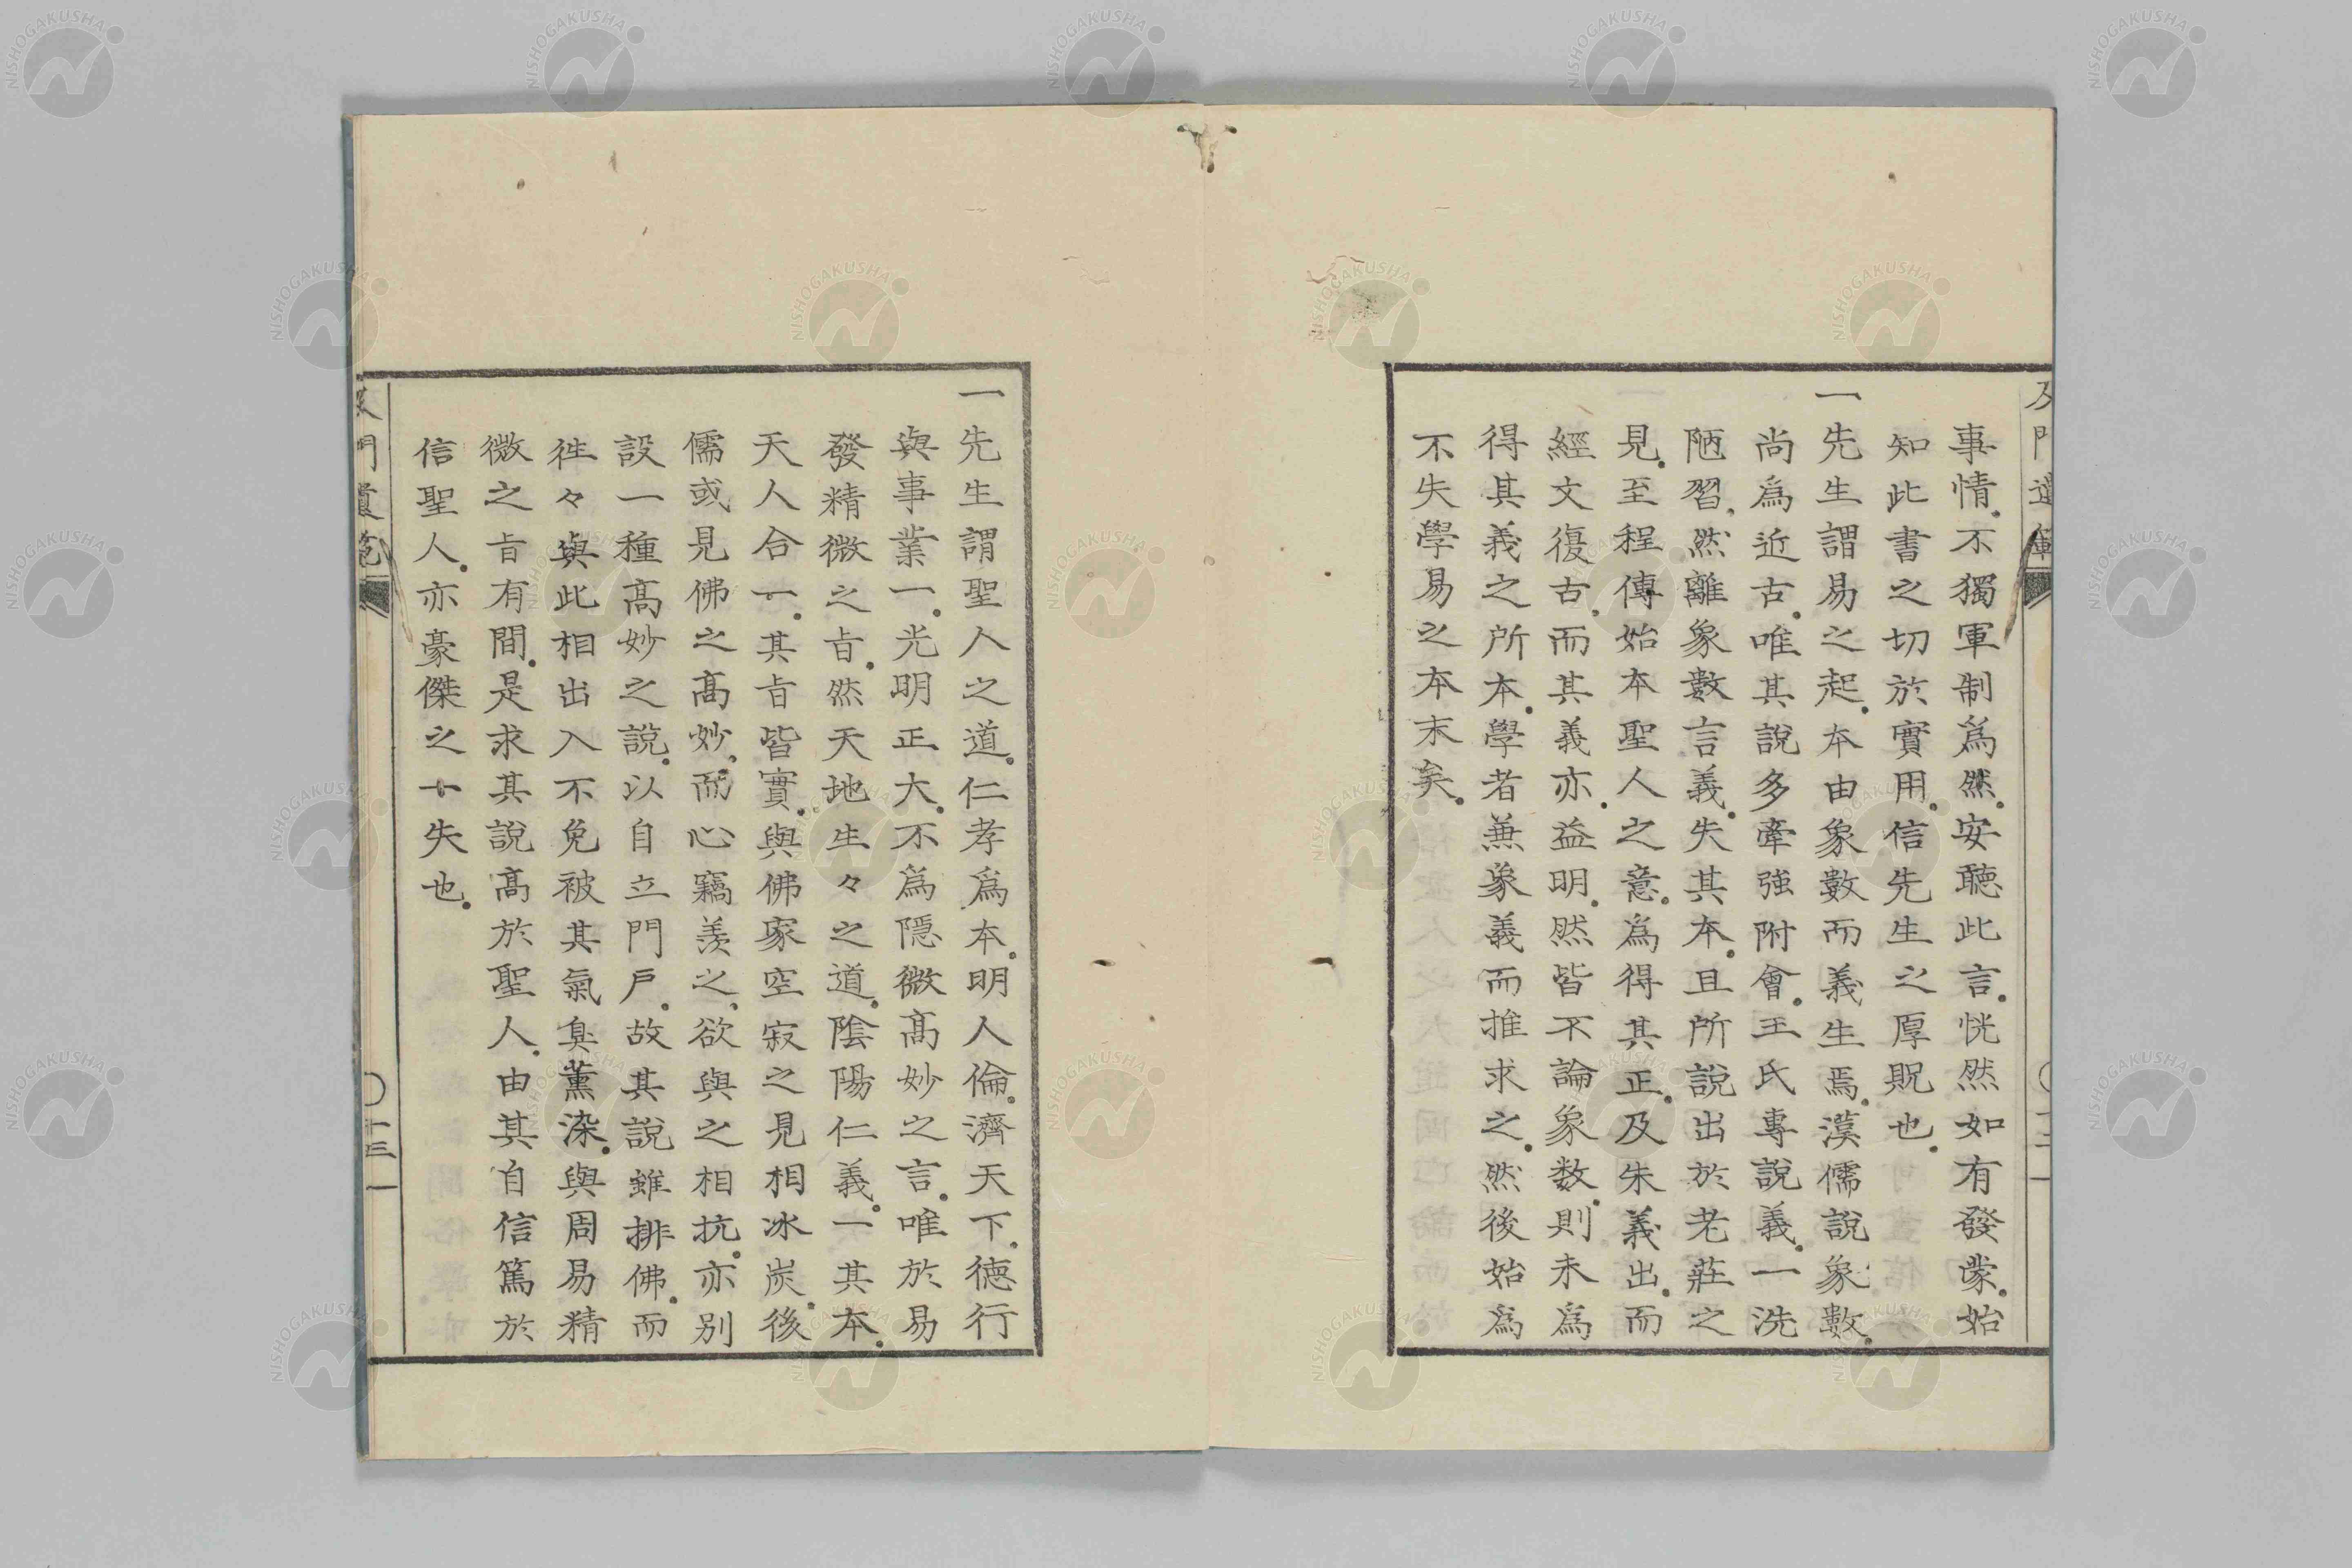 事情。不獨軍制爲然。安聽此言。恍然如有發蒙。始
知此書之切於實用。信先生之厚貺也。
一先生謂易之起。本由象數而義生焉。漢儒說象數。
尚爲近古。唯其說多牽強附會。王氏專說義。一洗
陋習。然離象數言義。失其本。且所說出於老莊之
見。至程傳始本聖人之意。爲得其正。及朱義出。而
經文復古。而其義亦。益明。然皆不論象数。則未爲
得其義之所本。學者兼象義而推求之。然後始爲
不失學易之本末矣。
一先生謂聖人之道。仁孝爲本。明人倫。濟天下。德行
與事業一。光明正大。不爲隱微高妙之言。唯於易
發精微之旨。然天地生々之道。陰陽仁義。一其本。
天人合一。其旨皆實。與佛家空寂之見相冰炭。後
儒或見佛之高妙。而心竊羨之。欲與之相抗。亦別
設一種高妙之說。以自立門戶。故其說雖排佛。而
往々與此相出入不免被其氣臭薰染。與周易精
微之旨有間。是求其說高於聖人。由其自信篤於
信聖人。亦豪傑之十失也。
NISHOGAKUSHA